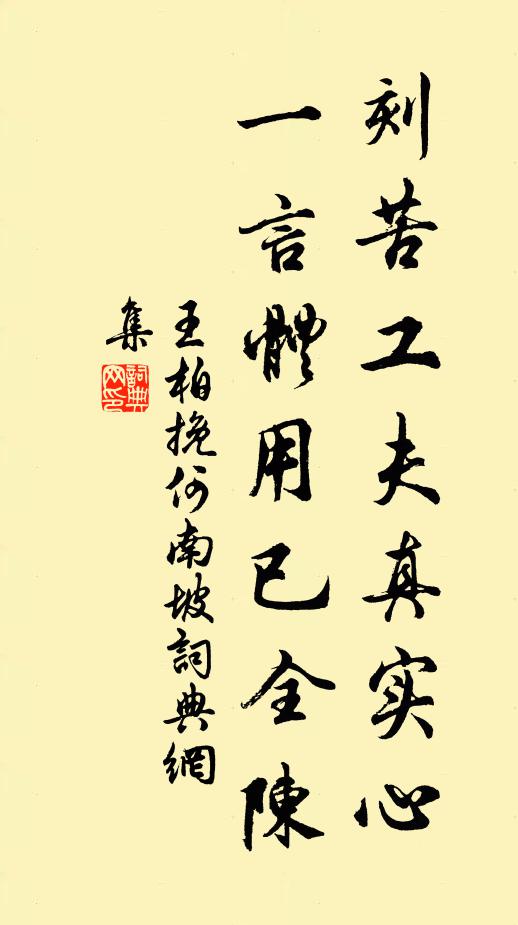 刻苦工夫真实心
一言體用已全陳
王柏挽何南坡詞典網
集
詞典网印